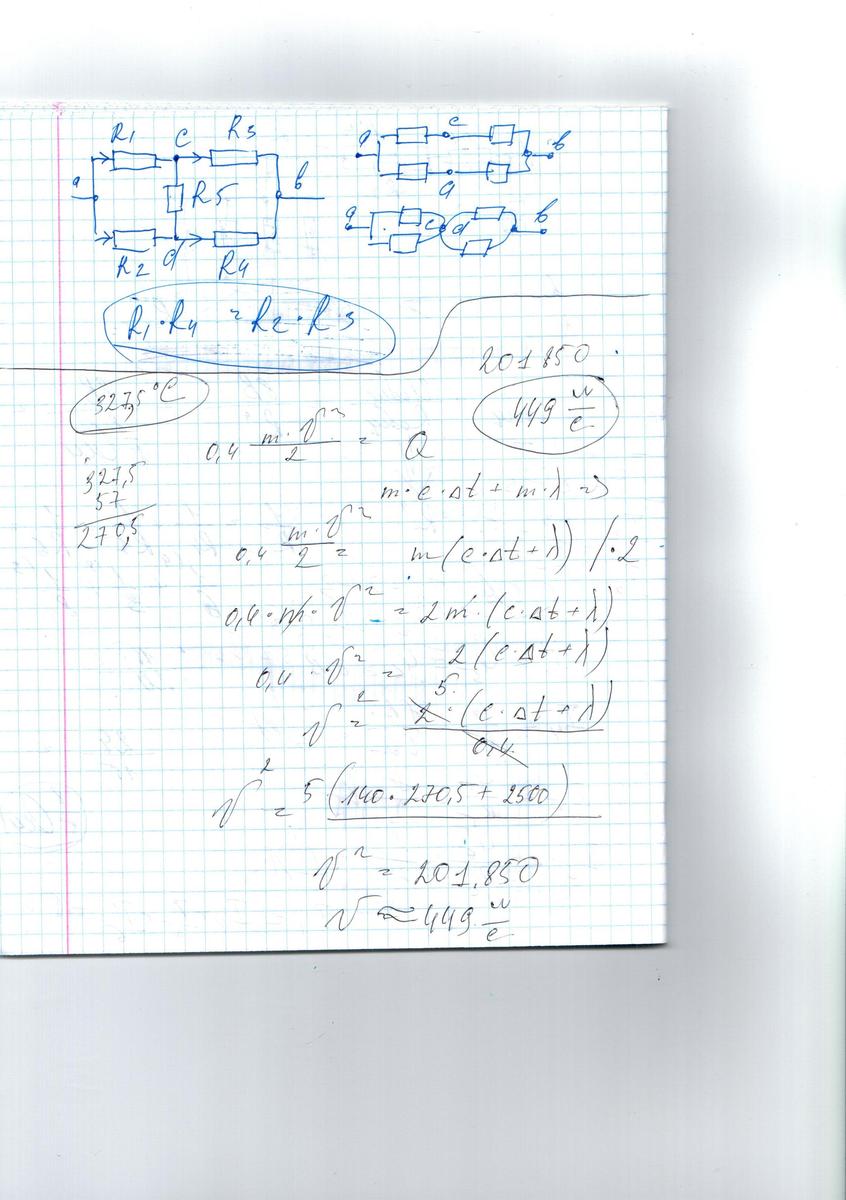 R1 c R3
a R5 b
R2 d R4
a c b
d
a c d b
R1·R4 = R2·R3
201850
327,5°C
449 м/с
0,4 m·V²/2 = Q
327,5
57
270,5
m·c·Δt + m·λ =>
0,4 m·V²/2 = m(c·Δt+λ) /·2
0,4·m·V² = 2m·(c·Δt+λ)
0,4·V² = 2(c·Δt+λ)
V² = 2·(c·Δt+λ)/0,4 5
V² = 5(140·270,5+2500)
V² = 201.850
V ≈ 449 м/с